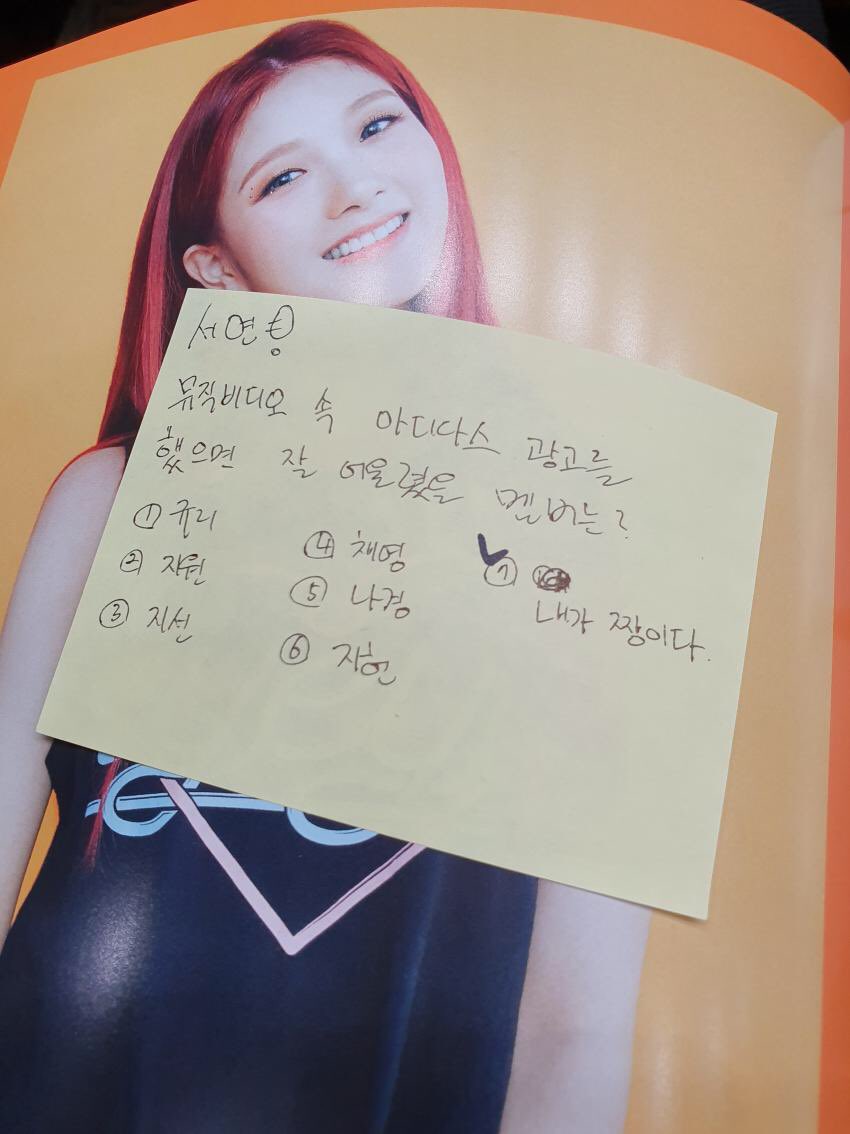 서연
뮤직비디오 속 아디다스 광고를
했으면 잘 어울렸을 멤버는?
① 규리
② 지원
③ 지선
④ 채영
⑤ 나경
⑥ 지헌
⑦
내가 짱이다.